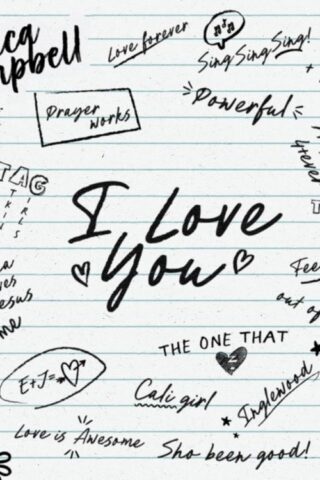 ca
mpbell
Love forever
Sing Sing Sing!
Powerful
Prayer
works
4+ever
TAG
I Love
You
Feel
out of
esus
me
THE ONE THAT
E+J=
Cali girl
Inglewood
Love is Awesome
Sho been good!